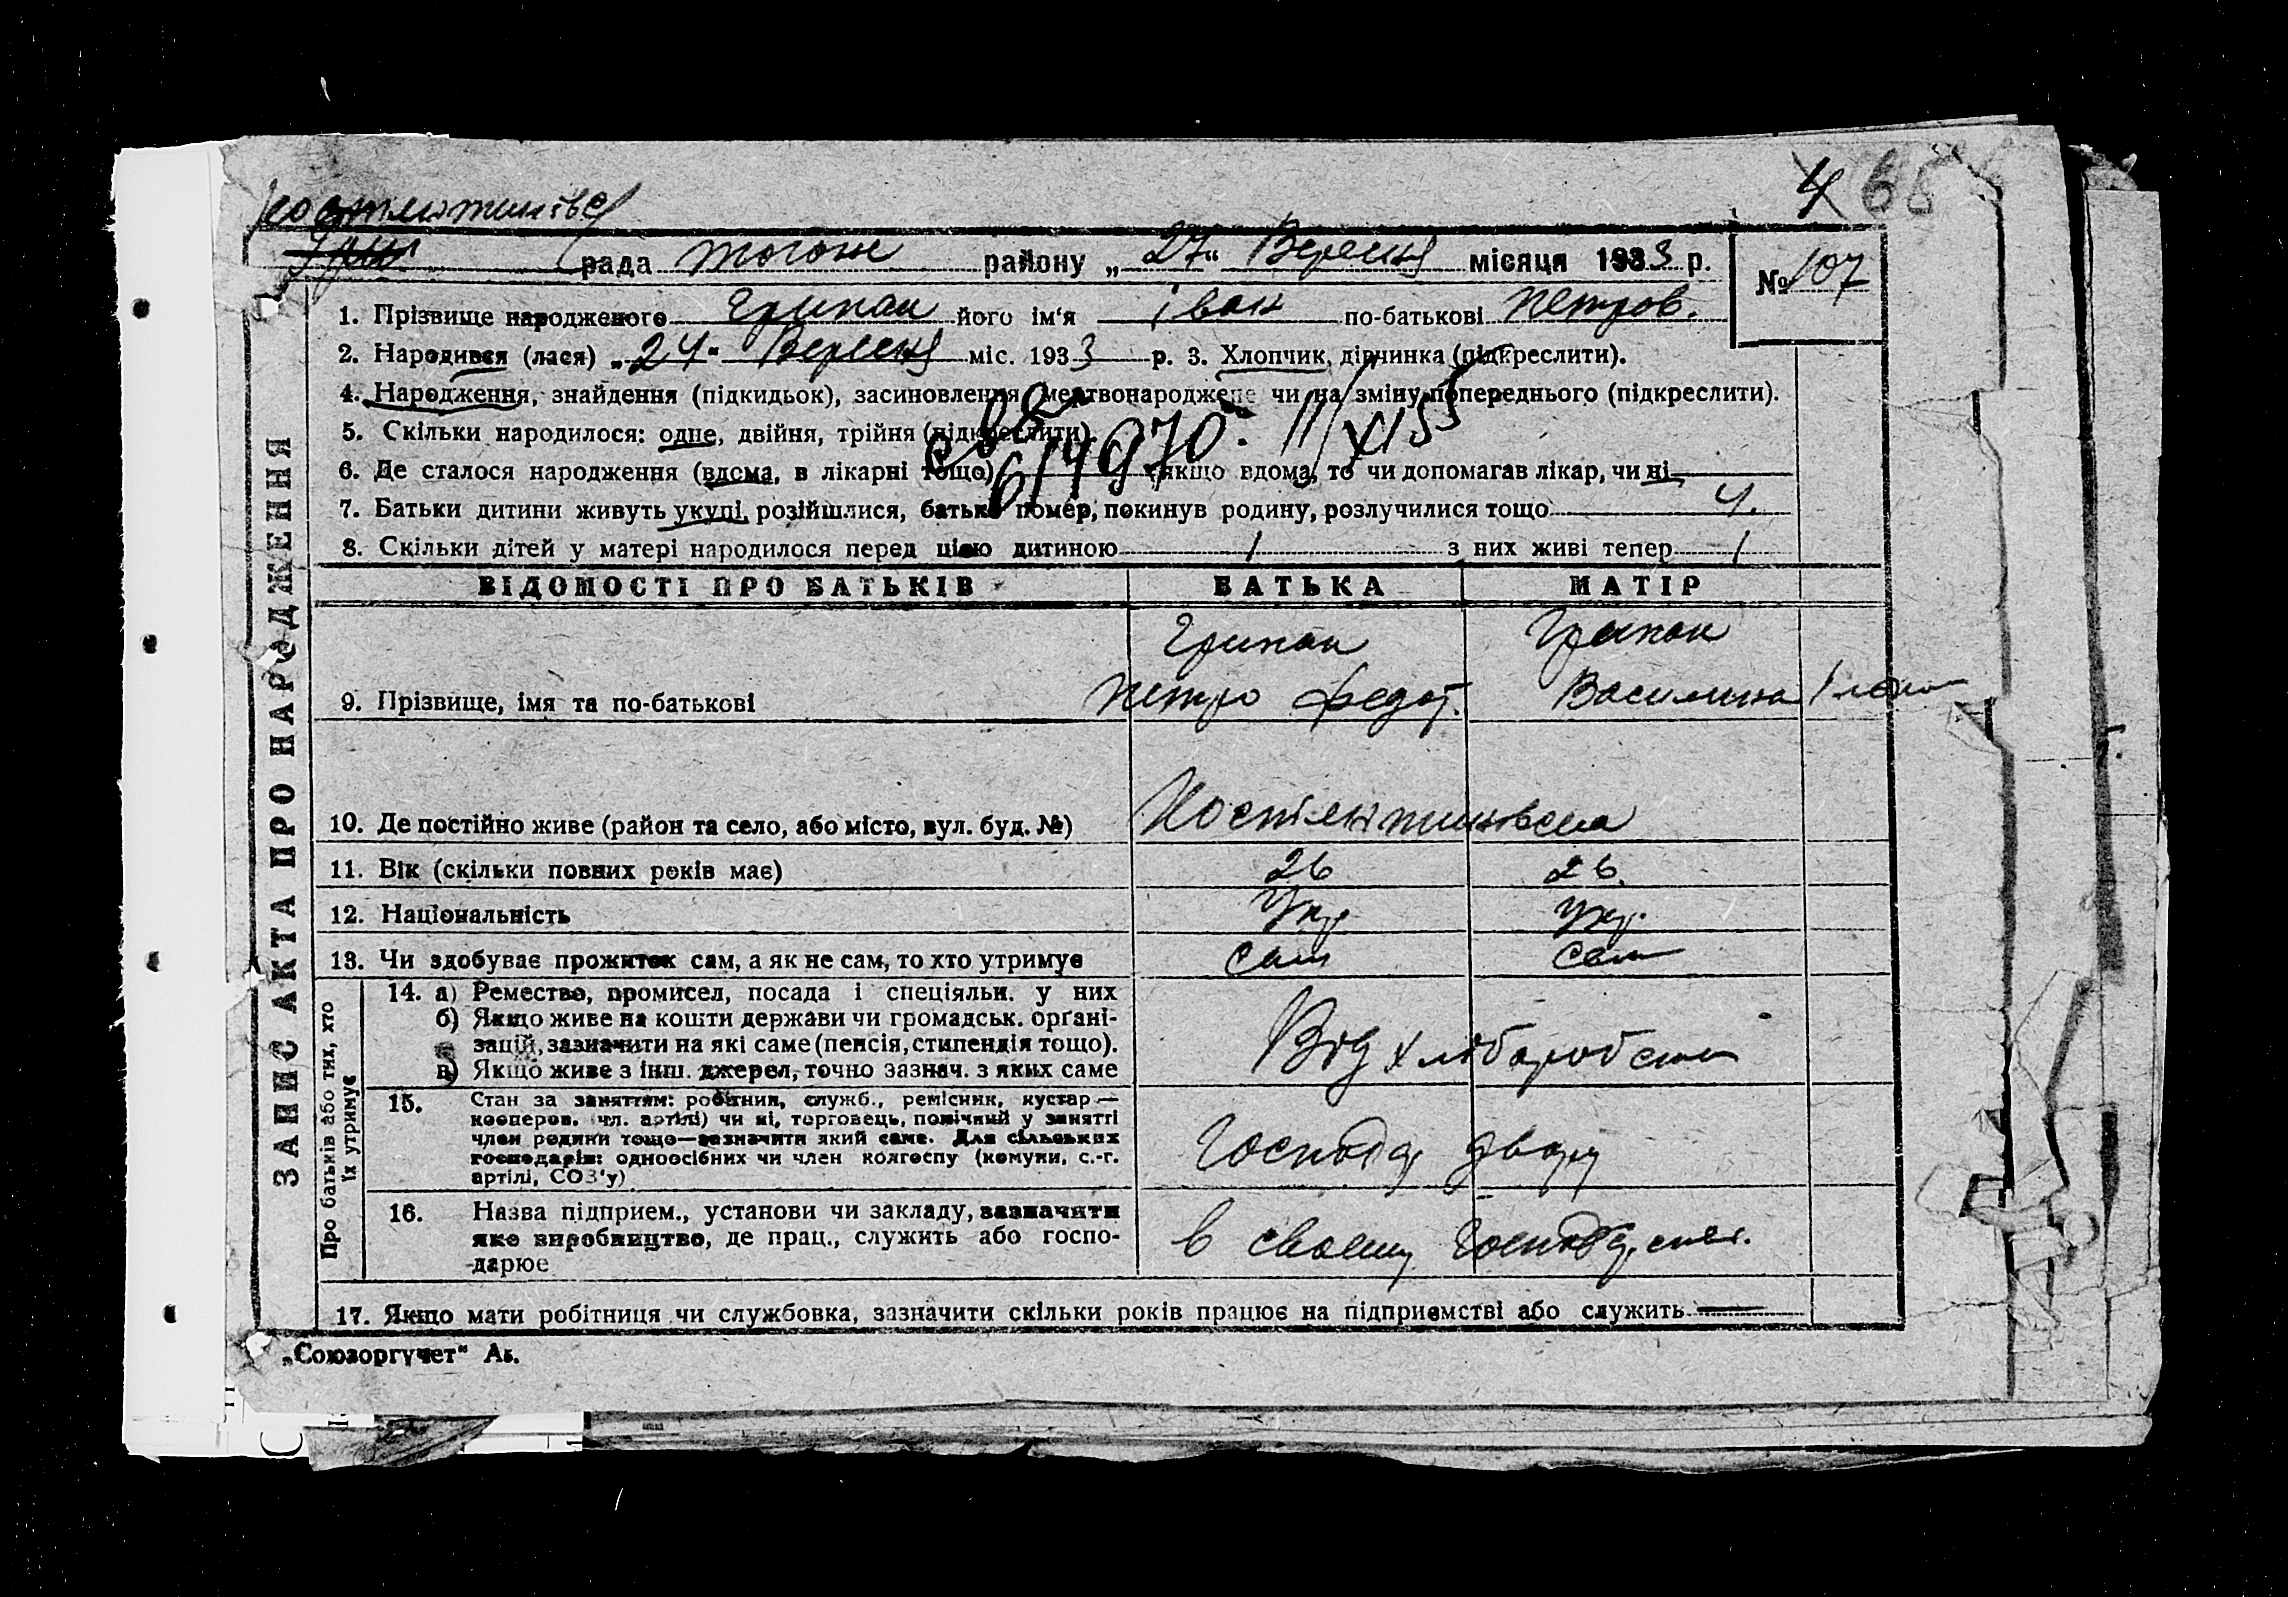 4 68
рада район у „27“ Вересня місяця 1933 р. №107
1. Прізвище народженого Грипан його ім‘я іван по-батькові Петров.
2. Народився (лася) „24“ Вересня міс. 1933 р. 3. Хлопчик, дівчинка (підкреслити).
4. Народження, знайдення (підкидьок), засиновлення, мертвонароджене чи на зміну попереднього (підкреслити).
5. Скільки народилося: одне, двійня, трійня (підкреслити)
6. Де сталося народження (вдома, в лікарні тощо) (якщо вдома, то чи допомагав лікар, чи ні
7. Батьки дитини живуть укупі, розійшлися, батько помер, покинув родину, розлучилися тощо У.
8. Скільки дітей у матері народилося перед цією дитиною 1 з них живі тепер 1
ВІДОМОСТІ ПРО БАТЬКІВ БАТЬКА МАТІР
Грипан Грипан
9. Прізвище, імя та по-батькові Петро Федот. Василина
10. Де постійно живе (район та село, або місто, вул. буд. №)
11. Вік (скільки повних років має) 26 26.
12. Національність Укр Укр.
13. Чи здобуває прожиток сам, а як не сам, то хто утримує сам сам
14. а) Ремество, промисел, посада і спеціяльн. у них
б) Якщо живе на кошти держави чи громадськ. орґані-
зацій, зазначити на які саме (пенсія, стипендія тощо).
в) Якщо живе з інш. джерел, точно зазнач. з яких саме
Від хліборобства
15. Стан за заняттям: робітник, служб., ремісник, кустар—
кооперов. чл. артілі) чи ні, торговець, помічний у занятті
член родини тощо—зазначити який саме. Для сільських
господарів: одноосібних чи член колгоспу (комуни, с.-г.
артілі, СОЗ‘у)
Господар двору
16. Назва підприєм., установи чи закладу, зазначити
яке виробництво, де прац., служить або госпо-
дарює
в своему господарстві.
17. Якщо мати робітниця чи службовка, зазначити скільки років працює на підприємстві або служить —
„Союзоргучет“
ЗАПИС АКТА ПРО НАРОДЖЕННЯ
Про батьків або тих, хто
їх утримує